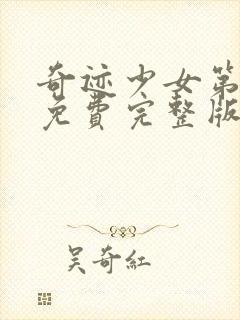 奇迹少女第
免費完整版
吴奇紅